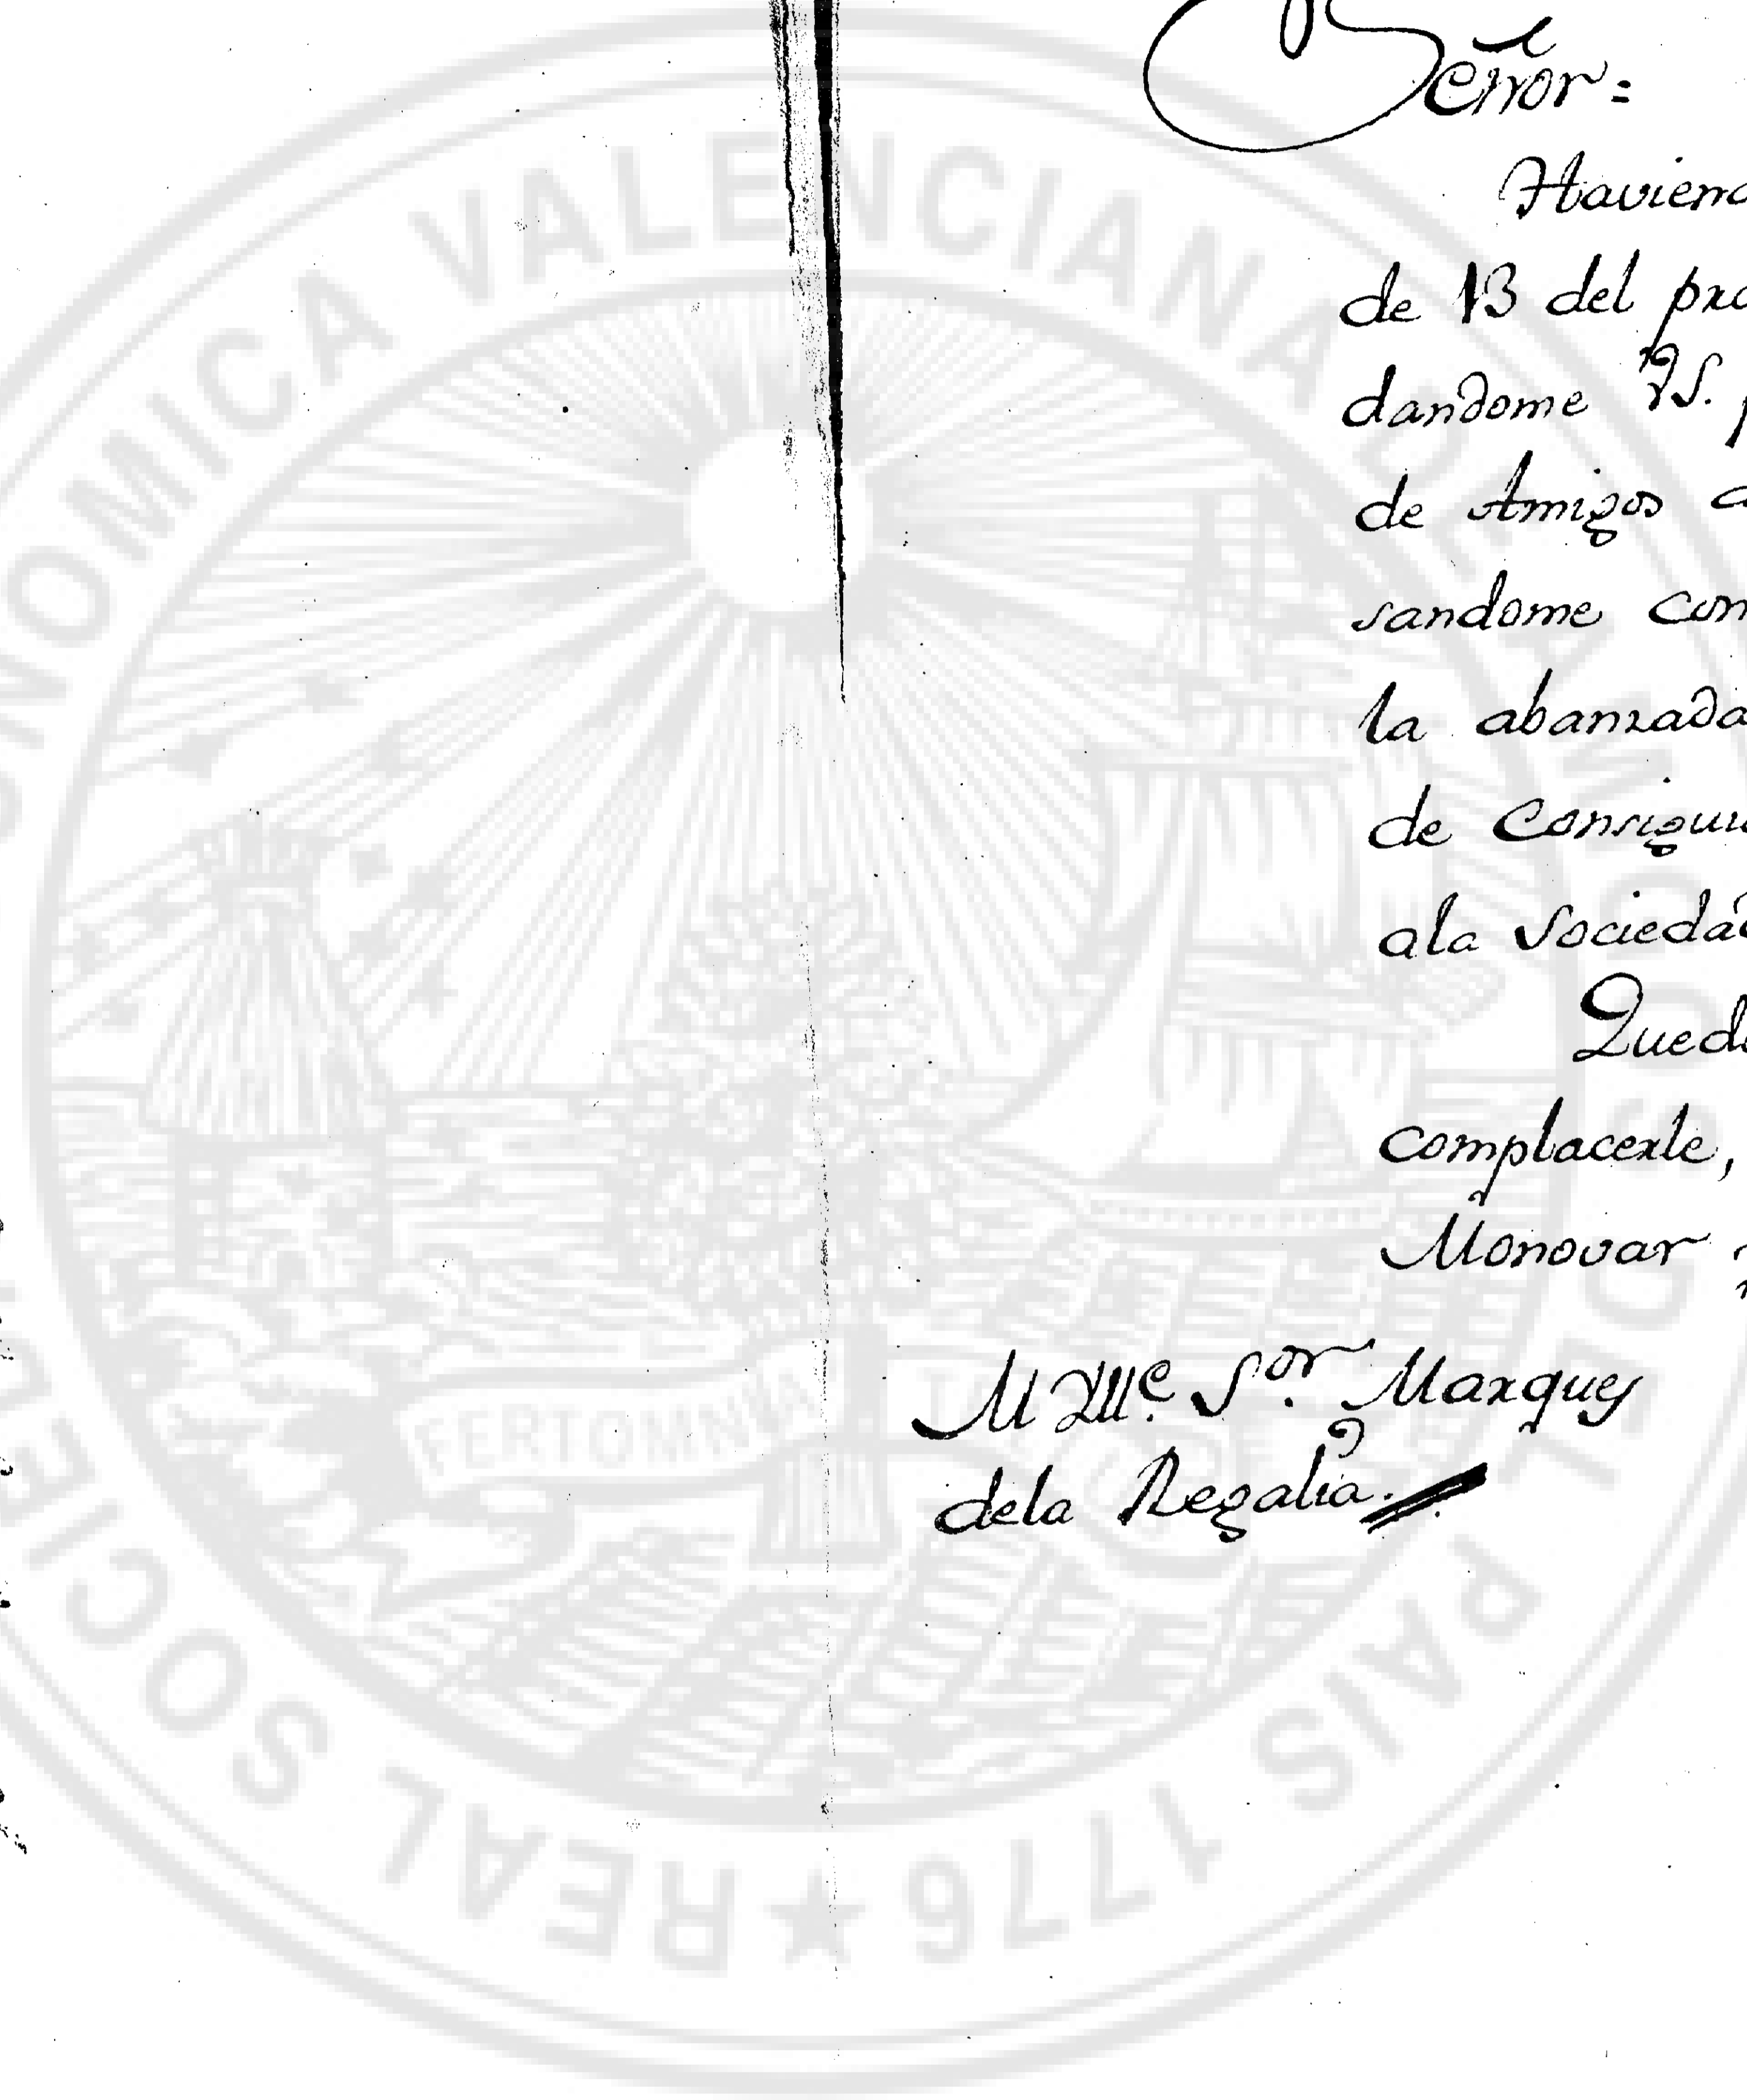 Señor =
Haviend
de 13 del pro
dandome VS. p
de Amigos d
sandome con
la abanzada
de Consigui
ala Sociedad
Qued
complacerle,
Monovar
M Ille. Sor. Marques
dela Regalia.
REAL SOCIEDAD ECONOMICA VALENCIANA DE AMIGOS DEL PAIS 1776